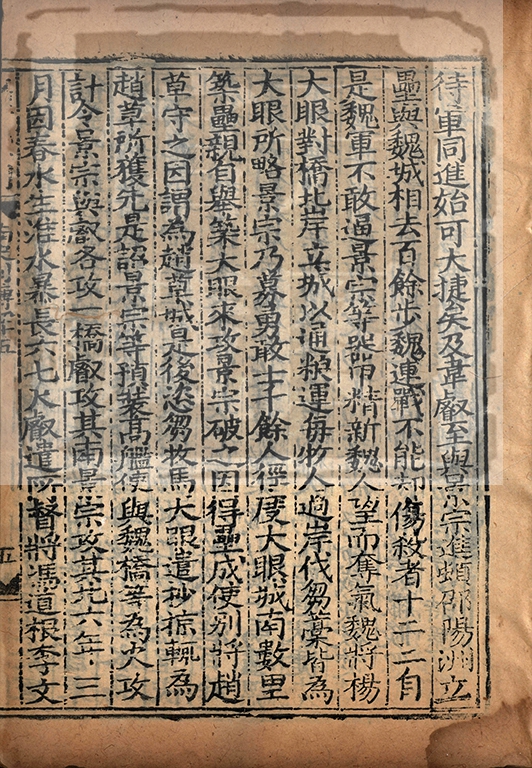 待軍同進始可大捷矣及韋叡至與景宗進頓邵陽洲立
壘與魏城相去百餘步魏連戰不能却傷殺者十二三自
是魏軍不敢逼景宗等器甲精新魏人望而奪氣魏將楊
大眼對橋北岸立城以通糧運每牧人過岸伐芻藁皆為
大眼所略景宗乃募勇敢士千餘人徑度大眼城南數里
築壘親自舉築大眼來攻景宗破之因得壘成使別將趙
草守之因謂為趙草城是後恣芻牧馬大眼遣抄掠輒為
趙草所獲先是詔景宗等預裝高艦使與魏橋等為火攻
計令景宗與叡各攻一橋叡攻其南景宗攻其北六年三
月因春水生淮水暴長六七尺叡遣所督將馮道根李文
五